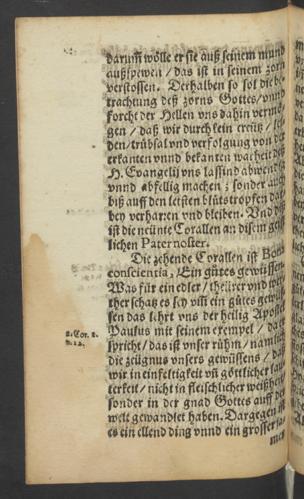 darumm wölle er sie auß seinem mund
außspewen / das ist in seinem zorn
verstossen. Derhalben so sol die be-
trachtung deß zorns Gottes / vnnd
forcht der Hellen vns dahin vermö-
gen / daß wir durch kein creütz / ley-
den / trübsal vnd verfolgung von der
erkanten vnnd bekanten warheit deß
H. Evangelij vns lassind abwenden
vnnd abfellig machen; sonder auch
biß auff den letsten blůtstropfen dar-
bey verharren vnd bleiben. Vnd diß
ist die neünte Corallen an disem geist-
lichen Paternoster.
Die zehende Corallen ist Bona
conscientia, Ein gůtes gewüssen.
Was für ein edler / theürer vnd
ther schatz es sey vm̃ ein gůtes gewüs-
sen das lehrt vns der heilig Apostel
Paulus mit seinem exempel / da er
2. Cor. 1.
spricht / das ist vnser růhm / namlich
v. 12.
die zeügnus vnsers gewüssens / daß
wir in einfeltigkeit vñ göttlicher lau-
terkeit / nicht in fleischlicher weißheit
sonder in der gnad Gottes auff der
welt gewandlet haben. Dargegen ist
es ein ellend ding vnnd ein grosser
mer